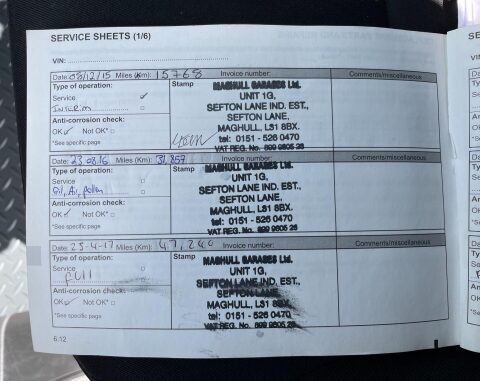 SERVICE SHEETS (1/6)
VIN:
Date: 08/12/15 Miles (Km): 15768 Invoice number: Comments/miscellaneous
Type of operation: Stamp
Service ✓
Interim
Anti-corrosion check:
OK ✓ Not OK* □
*See specific page
MAGHULL GARAGES Ltd.
UNIT 1G,
SEFTON LANE IND. EST.,
SEFTON LANE,
MAGHULL, L31 8BX.
tel: 0151 - 526 0470
VAT REG. No. 699 9805 26
Date: 23.08.16 Miles (Km): 31,859 Invoice number: Comments/miscellaneous
Type of operation: Stamp
Service □
Oil, Air, pollen □
Anti-corrosion check:
OK ✓ Not OK* □
*See specific page
MAGHULL GARAGES Ltd.
UNIT 1G,
SEFTON LANE IND. EST.,
SEFTON LANE,
MAGHULL, L31 8BX.
tel: 0151 - 526 0470
VAT REG. No. 699 9805 26
Date: 25-4-17 Miles (Km): 47,240 Invoice number: Comments/miscellaneous
Type of operation: Stamp
Service □
Full □
Anti-corrosion check:
OK ✓ Not OK* □
*See specific page
MAGHULL GARAGES Ltd.
UNIT 1G,
SEFTON LANE IND. EST.,
SEFTON LANE,
MAGHULL, L31 8BX.
tel: 0151 - 526 0470
VAT REG. No. 699 9805 26
6.12